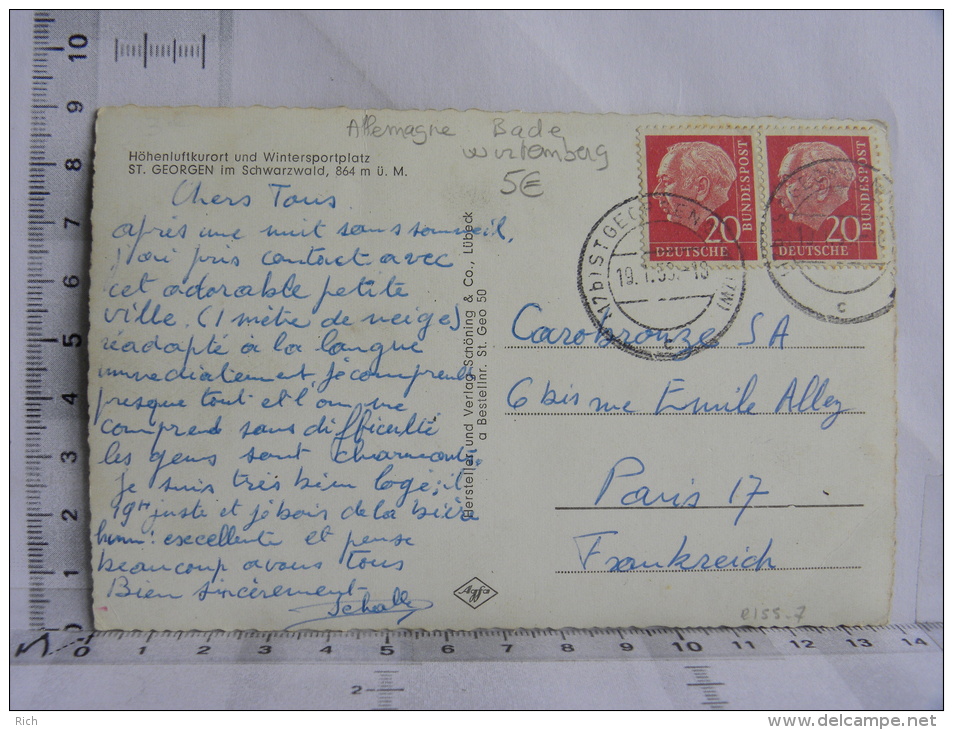 Allemagne Bade
Wurtemberg
5€
Höhenluftkurort und Wintersportplatz
ST. GEORGEN im Schwarzwald, 864 m ü. M.
Chers Tous
après une nuit sans sommeil,
j'ai pris contact avec
cet adorable petite
ville. (1 mètre de neige)
réadapté à la langue
immédiatement, je comprends
presque tout et l'on me
comprend sans difficulté
les gens sont charmants.
je suis très bien logé; il
19h juste et je bois de la bière
hum: excellente et pense
beaucoup a vous tous
Bien sincèrement
Hersteller und Verlag Schöning & Co., Lübeck
a Bestellnr. St. Geo 50
20
DEUTSCHE
BUNDESPOST
20
DEUTSCHE
BUNDESPOST
c
Carobronze SA
6 bis rue Emile Allez
Paris 17
Frankreich
Agfa
e155-7
10
9
8
7
6
5
4
3
2
1
0
0 1 2 3 4 5 6 7 8 9 10 11 12 13 14
2
Rich
http://www.delcampe.net